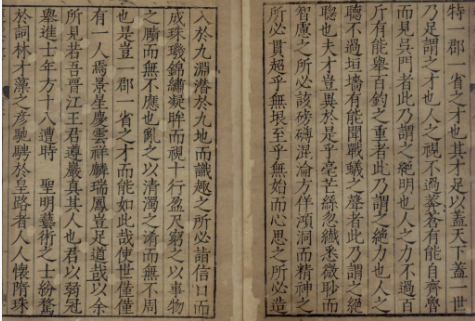 特一郡一省之才也其才足以蓋天下蓋一世
乃足謂之才也人之視不過蒼有能自齊魯
而見吳門者此乃謂之絕明也人之力不過百
斤有能舉百鈞之重者此乃謂之絕力也人之
聽不過垣墻有能聞戰蟻之聲者此乃謂之絕
聰也夫才豈異於是乎毫芒絲忽纖悉微眇而
智慮之所必該磅礴混淪方佯澒洞而精神之
所必貫超乎無垠至乎無始而心思之所必造
入於九淵潛於九地而識趣之所必詣信口而
成珠璣錦繡凝眸而視十行盈尺窮之以事物
之賾而無不應也亂之以清濁之淆而無不周
也是豈一郡一省之才而能如此哉使世僅僅
有一人焉景星慶雲祥麟瑞鳳豈足道哉以余
所見若吾晉江王君遵嚴真其人也君以弱冠
舉進士年方十八遭時 聖明藝術之士紛騖
於詞林才藻之彥馳騁於皇路者人人懷隋珠